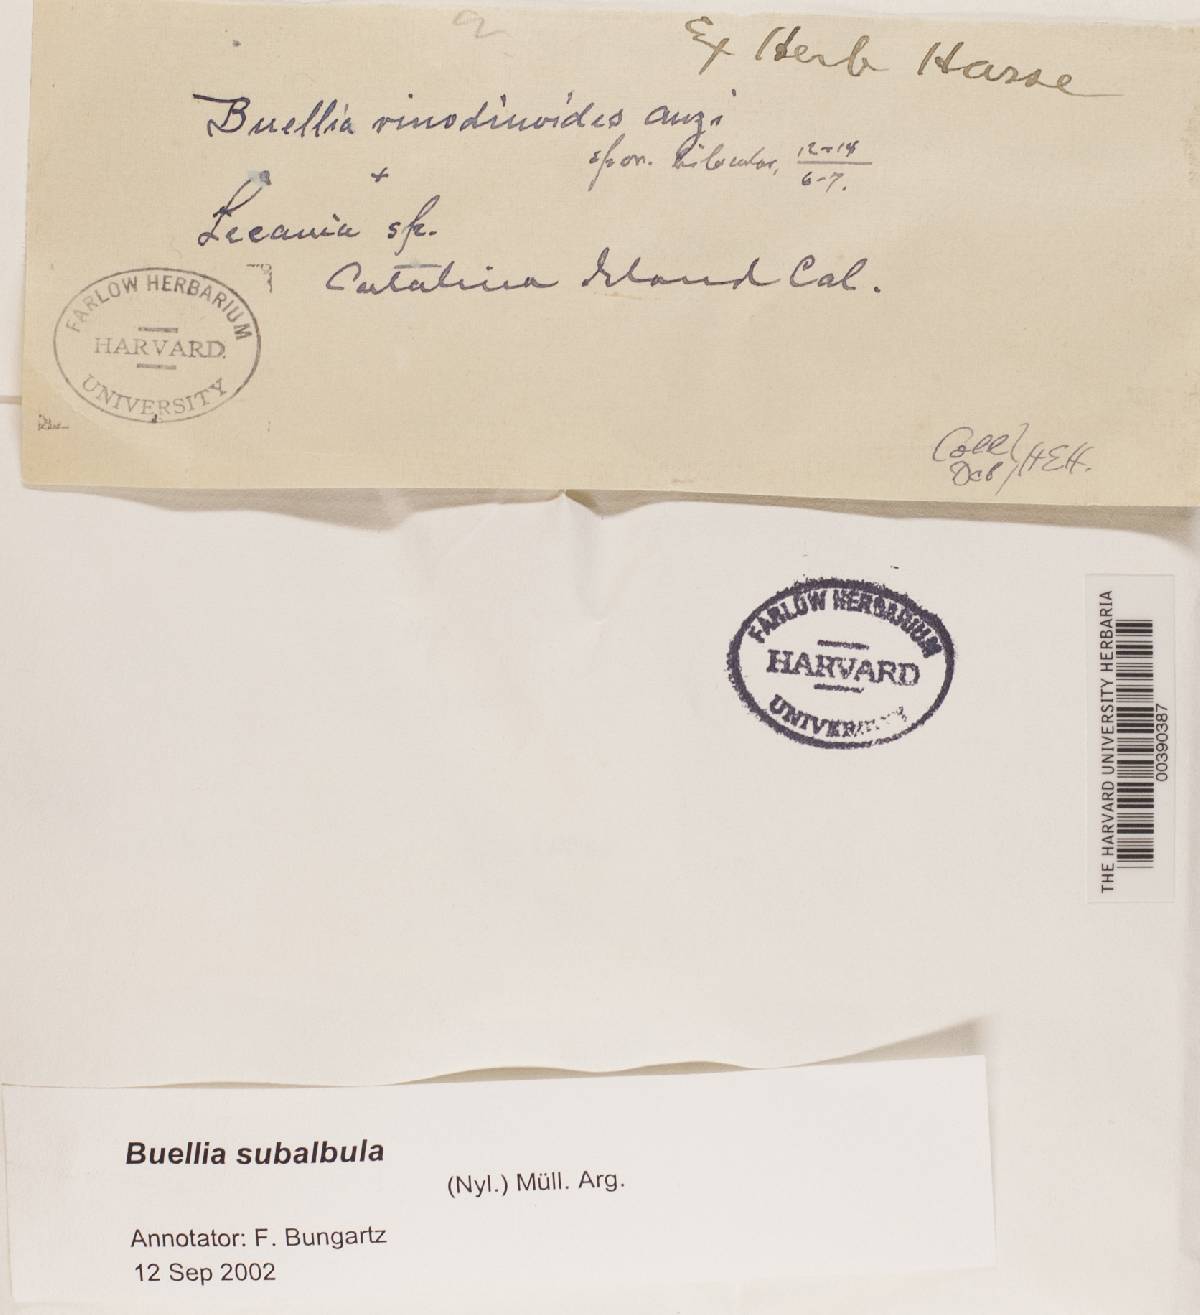 Ex Herb Hasse
Buellia rinodinoides Anzi
spor. bilocular, 12-14
6-7.
+
Lecania sp.
Catalina Island Cal.
FARLOW HERBARIUM
HARVARD
UNIVERSITY
Coll
Det } HEH.
FARLOW HERBARIUM
HARVARD
UNIVERSITY
THE HARVARD UNIVERSITY HERBARIA
00390387
Buellia subalbula
(Nyl.) Müll. Arg.
Annotator: F. Bungartz
12 Sep 2002